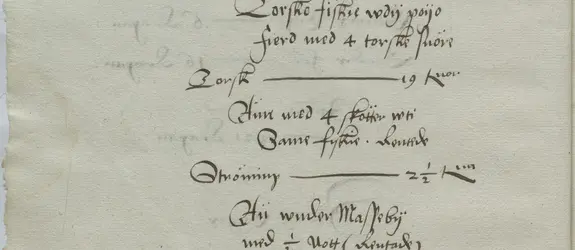 Torske fiskie wdij poijo
fierd med 4 torske snöre
Torsk 19 t
Änn med 4 skötter wti
Same fiskie. Rentede
Strömmg 2 1/2 t
Än wnder Masseby
med 1/2 Nott (Rentade)